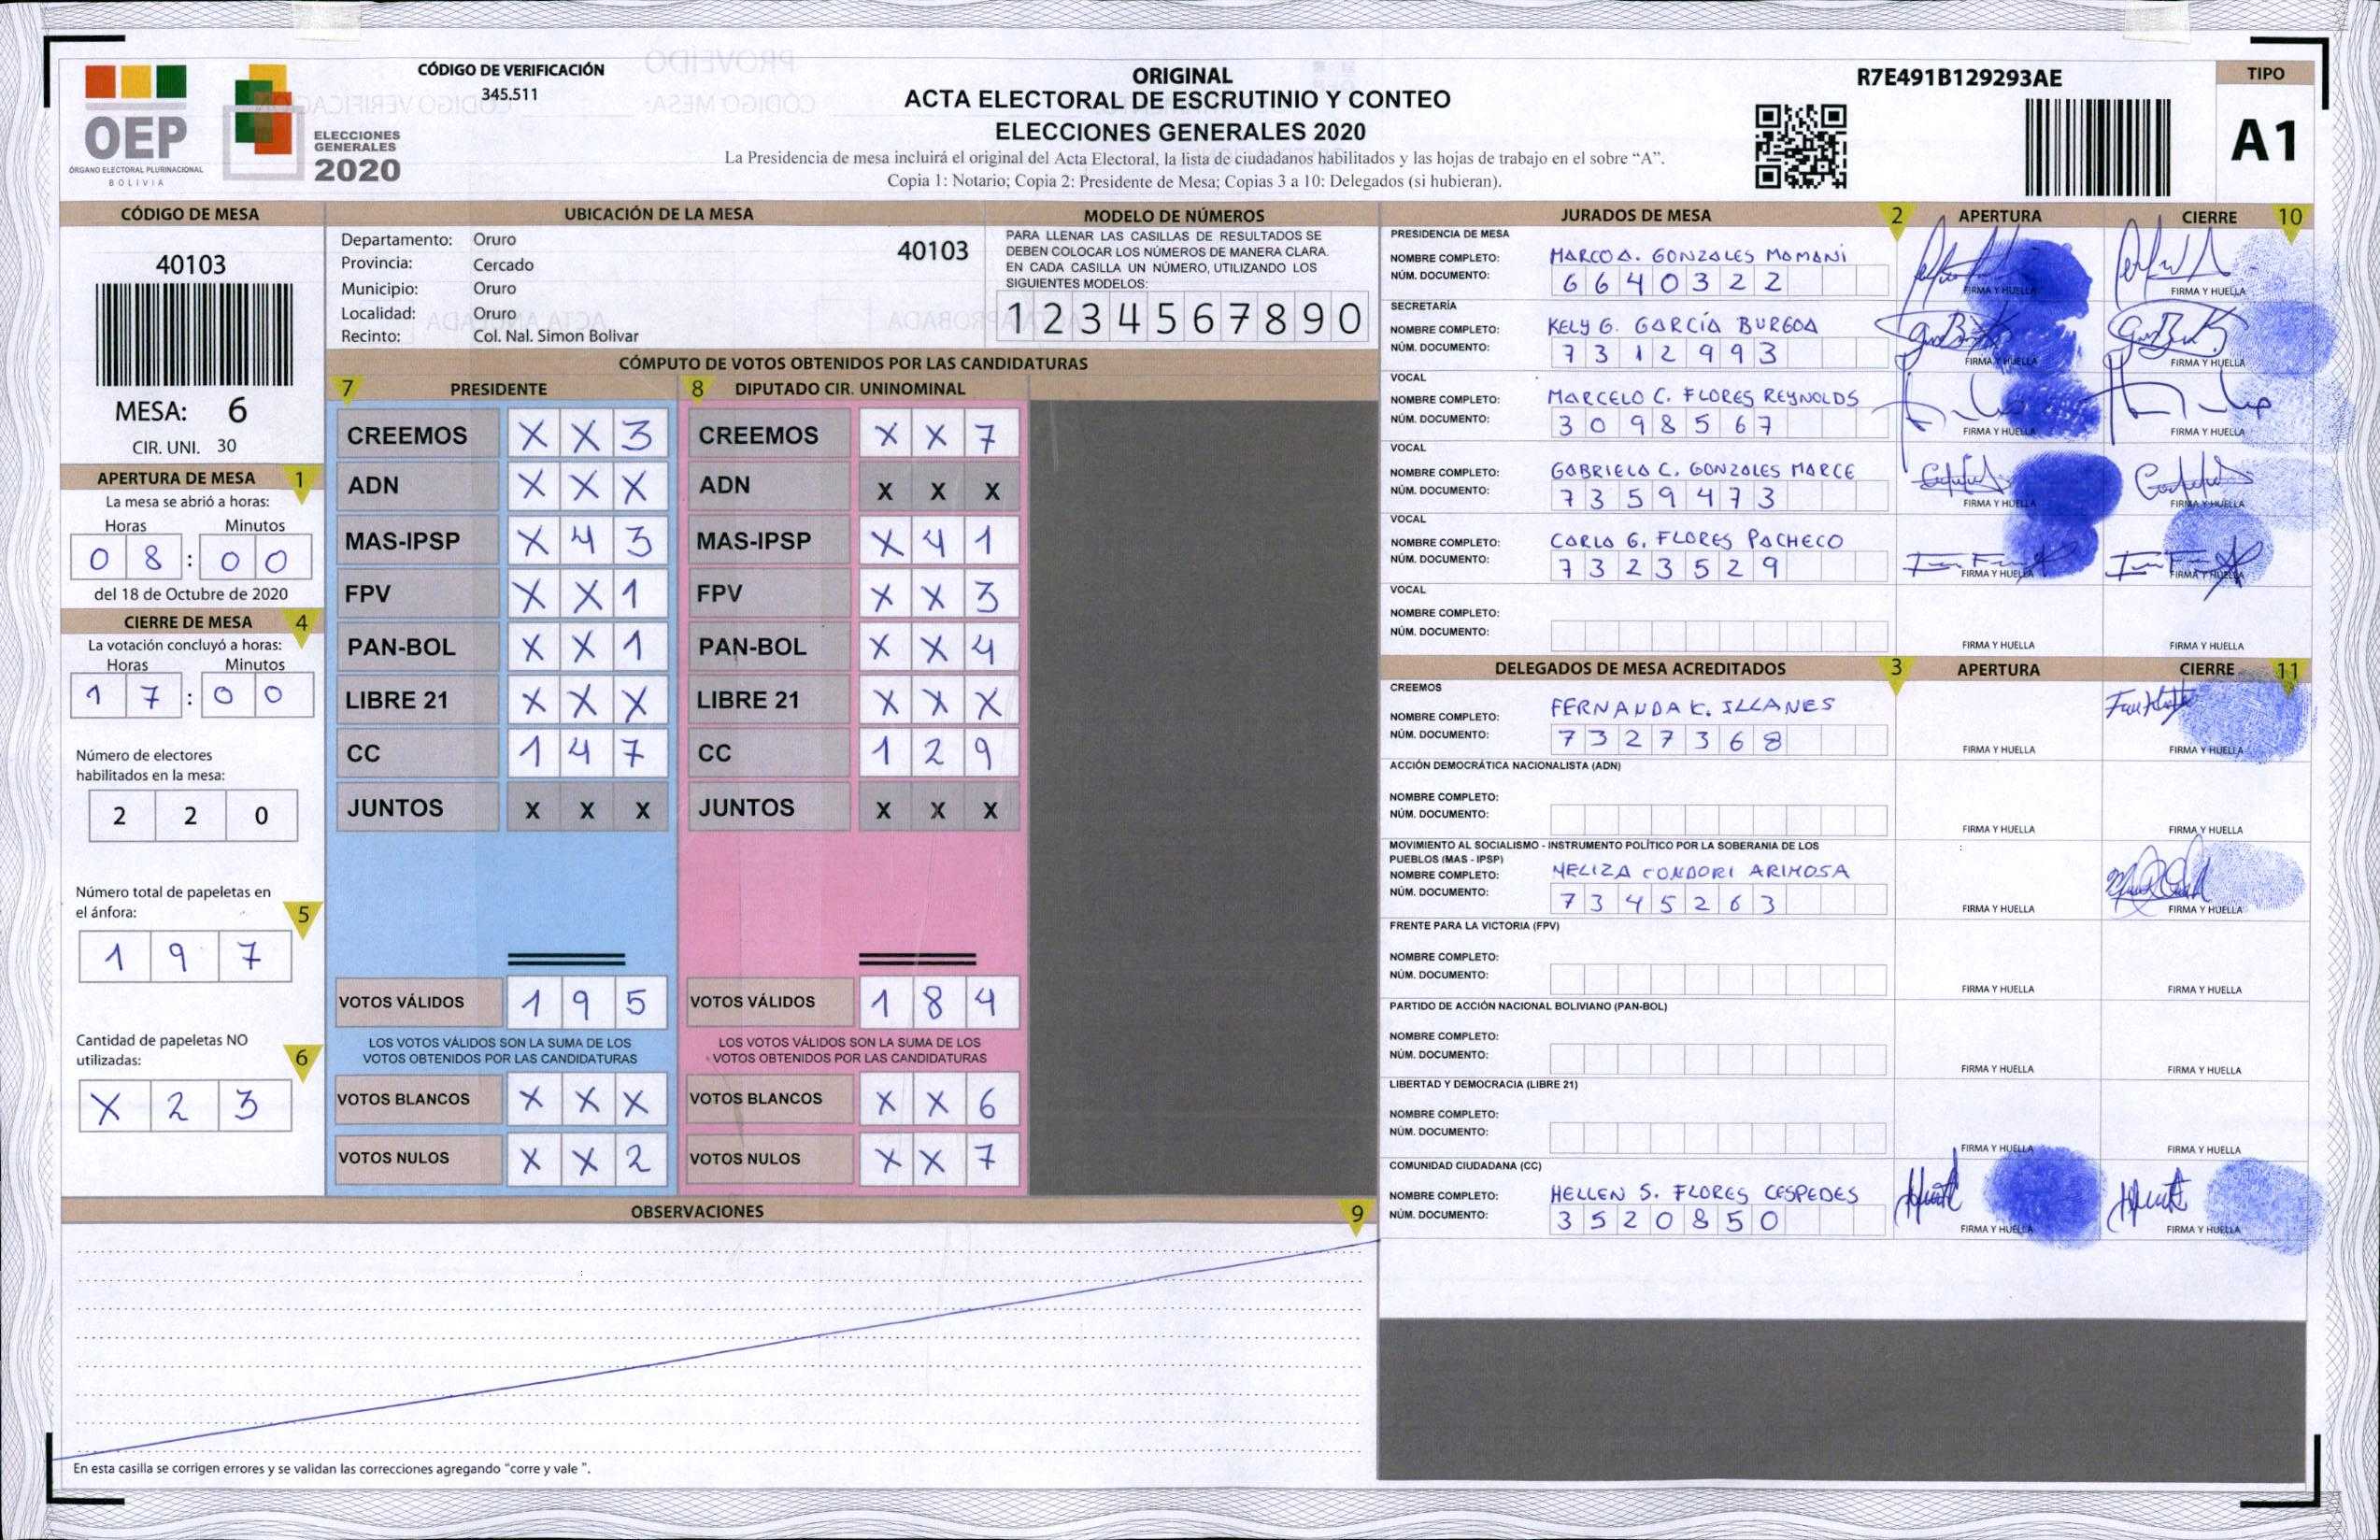 CÓDIGO DE VERIFICACIÓN
345.511
OEP
ÓRGANO ELECTORAL PLURINACIONAL
BOLIVIA
ELECCIONES
GENERALES
2020
ORIGINAL
ACTA ELECTORAL DE ESCRUTINIO Y CONTEO
ELECCIONES GENERALES 2020
La Presidencia de mesa incluirá el original del Acta Electoral, la lista de ciudadanos habilitados y las hojas de trabajo en el sobre “A”.
Copia 1: Notario; Copia 2: Presidente de Mesa; Copias 3 a 10: Delegados (si hubieran).
R7E491B129293AE
TIPO
A1
CÓDIGO DE MESA
40103
MESA: 6
CIR. UNI. 30
APERTURA DE MESA 1
La mesa se abrió a horas:
Horas Minutos
0 8 : 0 0
del 18 de Octubre de 2020
CIERRE DE MESA 4
La votación concluyó a horas:
Horas Minutos
1 7 : 0 0
Número de electores
habilitados en la mesa:
2 2 0
Número total de papeletas en
el ánfora: 5
1 9 7
Cantidad de papeletas NO
utilizadas: 6
X 2 3
UBICACIÓN DE LA MESA
Departamento: Oruro 40103
Provincia: Cercado
Municipio: Oruro
Localidad: Oruro
Recinto: Col. Nal. Simon Bolivar
MODELO DE NÚMEROS
PARA LLENAR LAS CASILLAS DE RESULTADOS SE
DEBEN COLOCAR LOS NÚMEROS DE MANERA CLARA.
EN CADA CASILLA UN NÚMERO, UTILIZANDO LOS
SIGUIENTES MODELOS:
1 2 3 4 5 6 7 8 9 0
CÓMPUTO DE VOTOS OBTENIDOS POR LAS CANDIDATURAS
7 PRESIDENTE
CREEMOS X X 3
ADN X X X
MAS-IPSP X 4 3
FPV X X 1
PAN-BOL X X 1
LIBRE 21 X X X
CC 1 4 7
JUNTOS X X X
VOTOS VÁLIDOS 1 9 5
LOS VOTOS VÁLIDOS SON LA SUMA DE LOS
VOTOS OBTENIDOS POR LAS CANDIDATURAS
VOTOS BLANCOS X X X
VOTOS NULOS X X 2
8 DIPUTADO CIR. UNINOMINAL
CREEMOS X X 7
ADN X X X
MAS-IPSP X 4 1
FPV X X 3
PAN-BOL X X 4
LIBRE 21 X X X
CC 1 2 9
JUNTOS X X X
VOTOS VÁLIDOS 1 8 4
LOS VOTOS VÁLIDOS SON LA SUMA DE LOS
VOTOS OBTENIDOS POR LAS CANDIDATURAS
VOTOS BLANCOS X X 6
VOTOS NULOS X X 7
OBSERVACIONES 9
En esta casilla se corrigen errores y se validan las correcciones agregando “corre y vale ”.
JURADOS DE MESA 2 APERTURA CIERRE 10
PRESIDENCIA DE MESA
NOMBRE COMPLETO: MARCO A. GONZALES MAMANI
NÚM. DOCUMENTO: 6 6 4 0 3 2 2
FIRMA Y HUELLA FIRMA Y HUELLA
SECRETARÍA
NOMBRE COMPLETO: KELY G. GARCÍA BURGOA
NÚM. DOCUMENTO: 7 3 1 2 9 9 3
FIRMA Y HUELLA FIRMA Y HUELLA
VOCAL
NOMBRE COMPLETO: MARCELO C. FLORES REYNOLDS
NÚM. DOCUMENTO: 3 0 9 8 5 6 7
FIRMA Y HUELLA FIRMA Y HUELLA
VOCAL
NOMBRE COMPLETO: GABRIELA C. GONZALES MARCE
NÚM. DOCUMENTO: 7 3 5 9 4 7 3
FIRMA Y HUELLA FIRMA Y HUELLA
VOCAL
NOMBRE COMPLETO: CARLA G. FLORES PACHECO
NÚM. DOCUMENTO: 7 3 2 3 5 2 9
FIRMA Y HUELLA FIRMA Y HUELLA
VOCAL
NOMBRE COMPLETO:
NÚM. DOCUMENTO:
FIRMA Y HUELLA FIRMA Y HUELLA
DELEGADOS DE MESA ACREDITADOS 3 APERTURA CIERRE 11
CREEMOS
NOMBRE COMPLETO: FERNANDA K. ILLANES
NÚM. DOCUMENTO: 7 3 2 7 3 6 8
FIRMA Y HUELLA FIRMA Y HUELLA
ACCIÓN DEMOCRÁTICA NACIONALISTA (ADN)
NOMBRE COMPLETO:
NÚM. DOCUMENTO:
FIRMA Y HUELLA FIRMA Y HUELLA
MOVIMIENTO AL SOCIALISMO - INSTRUMENTO POLÍTICO POR LA SOBERANIA DE LOS
PUEBLOS (MAS - IPSP)
NOMBRE COMPLETO: MELIZA CONDORI ARIMOSA
NÚM. DOCUMENTO: 7 3 4 5 2 6 3
FIRMA Y HUELLA FIRMA Y HUELLA
FRENTE PARA LA VICTORIA (FPV)
NOMBRE COMPLETO:
NÚM. DOCUMENTO:
FIRMA Y HUELLA FIRMA Y HUELLA
PARTIDO DE ACCIÓN NACIONAL BOLIVIANO (PAN-BOL)
NOMBRE COMPLETO:
NÚM. DOCUMENTO:
FIRMA Y HUELLA FIRMA Y HUELLA
LIBERTAD Y DEMOCRACIA (LIBRE 21)
NOMBRE COMPLETO:
NÚM. DOCUMENTO:
FIRMA Y HUELLA FIRMA Y HUELLA
COMUNIDAD CIUDADANA (CC)
NOMBRE COMPLETO: HELLEN S. FLORES CESPEDES
NÚM. DOCUMENTO: 3 5 2 0 8 5 0
FIRMA Y HUELLA FIRMA Y HUELLA